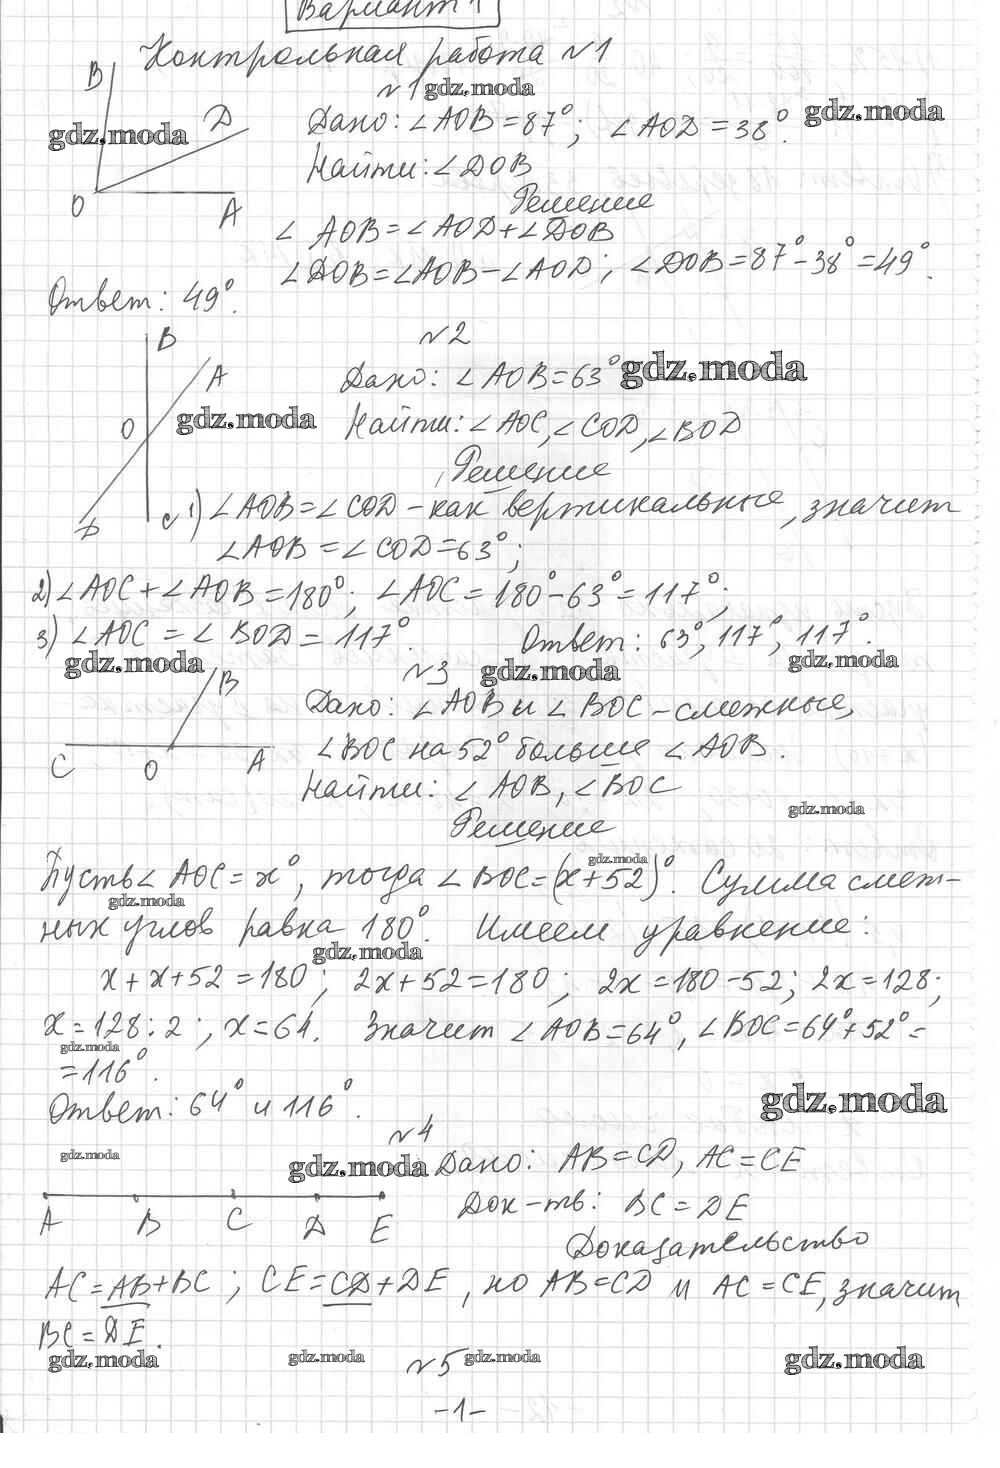 Вариант 1
Контрольная работа №1
№1 gdz.moda
B D O A
gdz.moda
Дано: ∠AOB = 87°; ∠AOD = 38°. gdz.moda
Найти: ∠DOB
Решение
∠AOB = ∠AOD + ∠DOB
∠DOB = ∠AOB − ∠AOD; ∠DOB = 87° − 38° = 49°.
Ответ: 49°.
№2
B A O D C
gdz.moda
Дано: ∠AOB = 63° gdz.moda
Найти: ∠AOC, ∠COD, ∠BOD
Решение
1) ∠AOB = ∠COD – как вертикальные, значит
∠AOB = ∠COD = 63°;
2) ∠AOC + ∠AOB = 180°; ∠AOC = 180° − 63° = 117°;
3) ∠AOC = ∠BOD = 117°. Ответ: 63°, 117°, 117°.
gdz.moda №3 gdz.moda gdz.moda
B C O A
Дано: ∠AOB и ∠BOC – смежные,
∠BOC на 52° больше ∠AOB.
Найти: ∠AOB, ∠BOC
gdz.moda
Решение
gdz.moda
Пусть ∠AOC = x°, тогда ∠BOC = (x + 52)°. Сумма смеж-
gdz.moda
ных углов равна 180°. Имеем уравнение:
gdz.moda
x + x + 52 = 180; 2x + 52 = 180; 2x = 180 − 52; 2x = 128;
x = 128 : 2; x = 64. Значит ∠AOB = 64°, ∠BOC = 64° + 52° =
gdz.moda
= 116°.
Ответ: 64° и 116°. gdz.moda
№4
gdz.moda gdz.moda Дано: AB = CD, AC = CE
A B C D E
Док-ть: BC = DE
Доказательство
AC = AB + BC; CE = CD + DE, но AB = CD и AC = CE, значит
BC = DE.
gdz.moda gdz.moda №5 gdz.moda gdz.moda
-1-